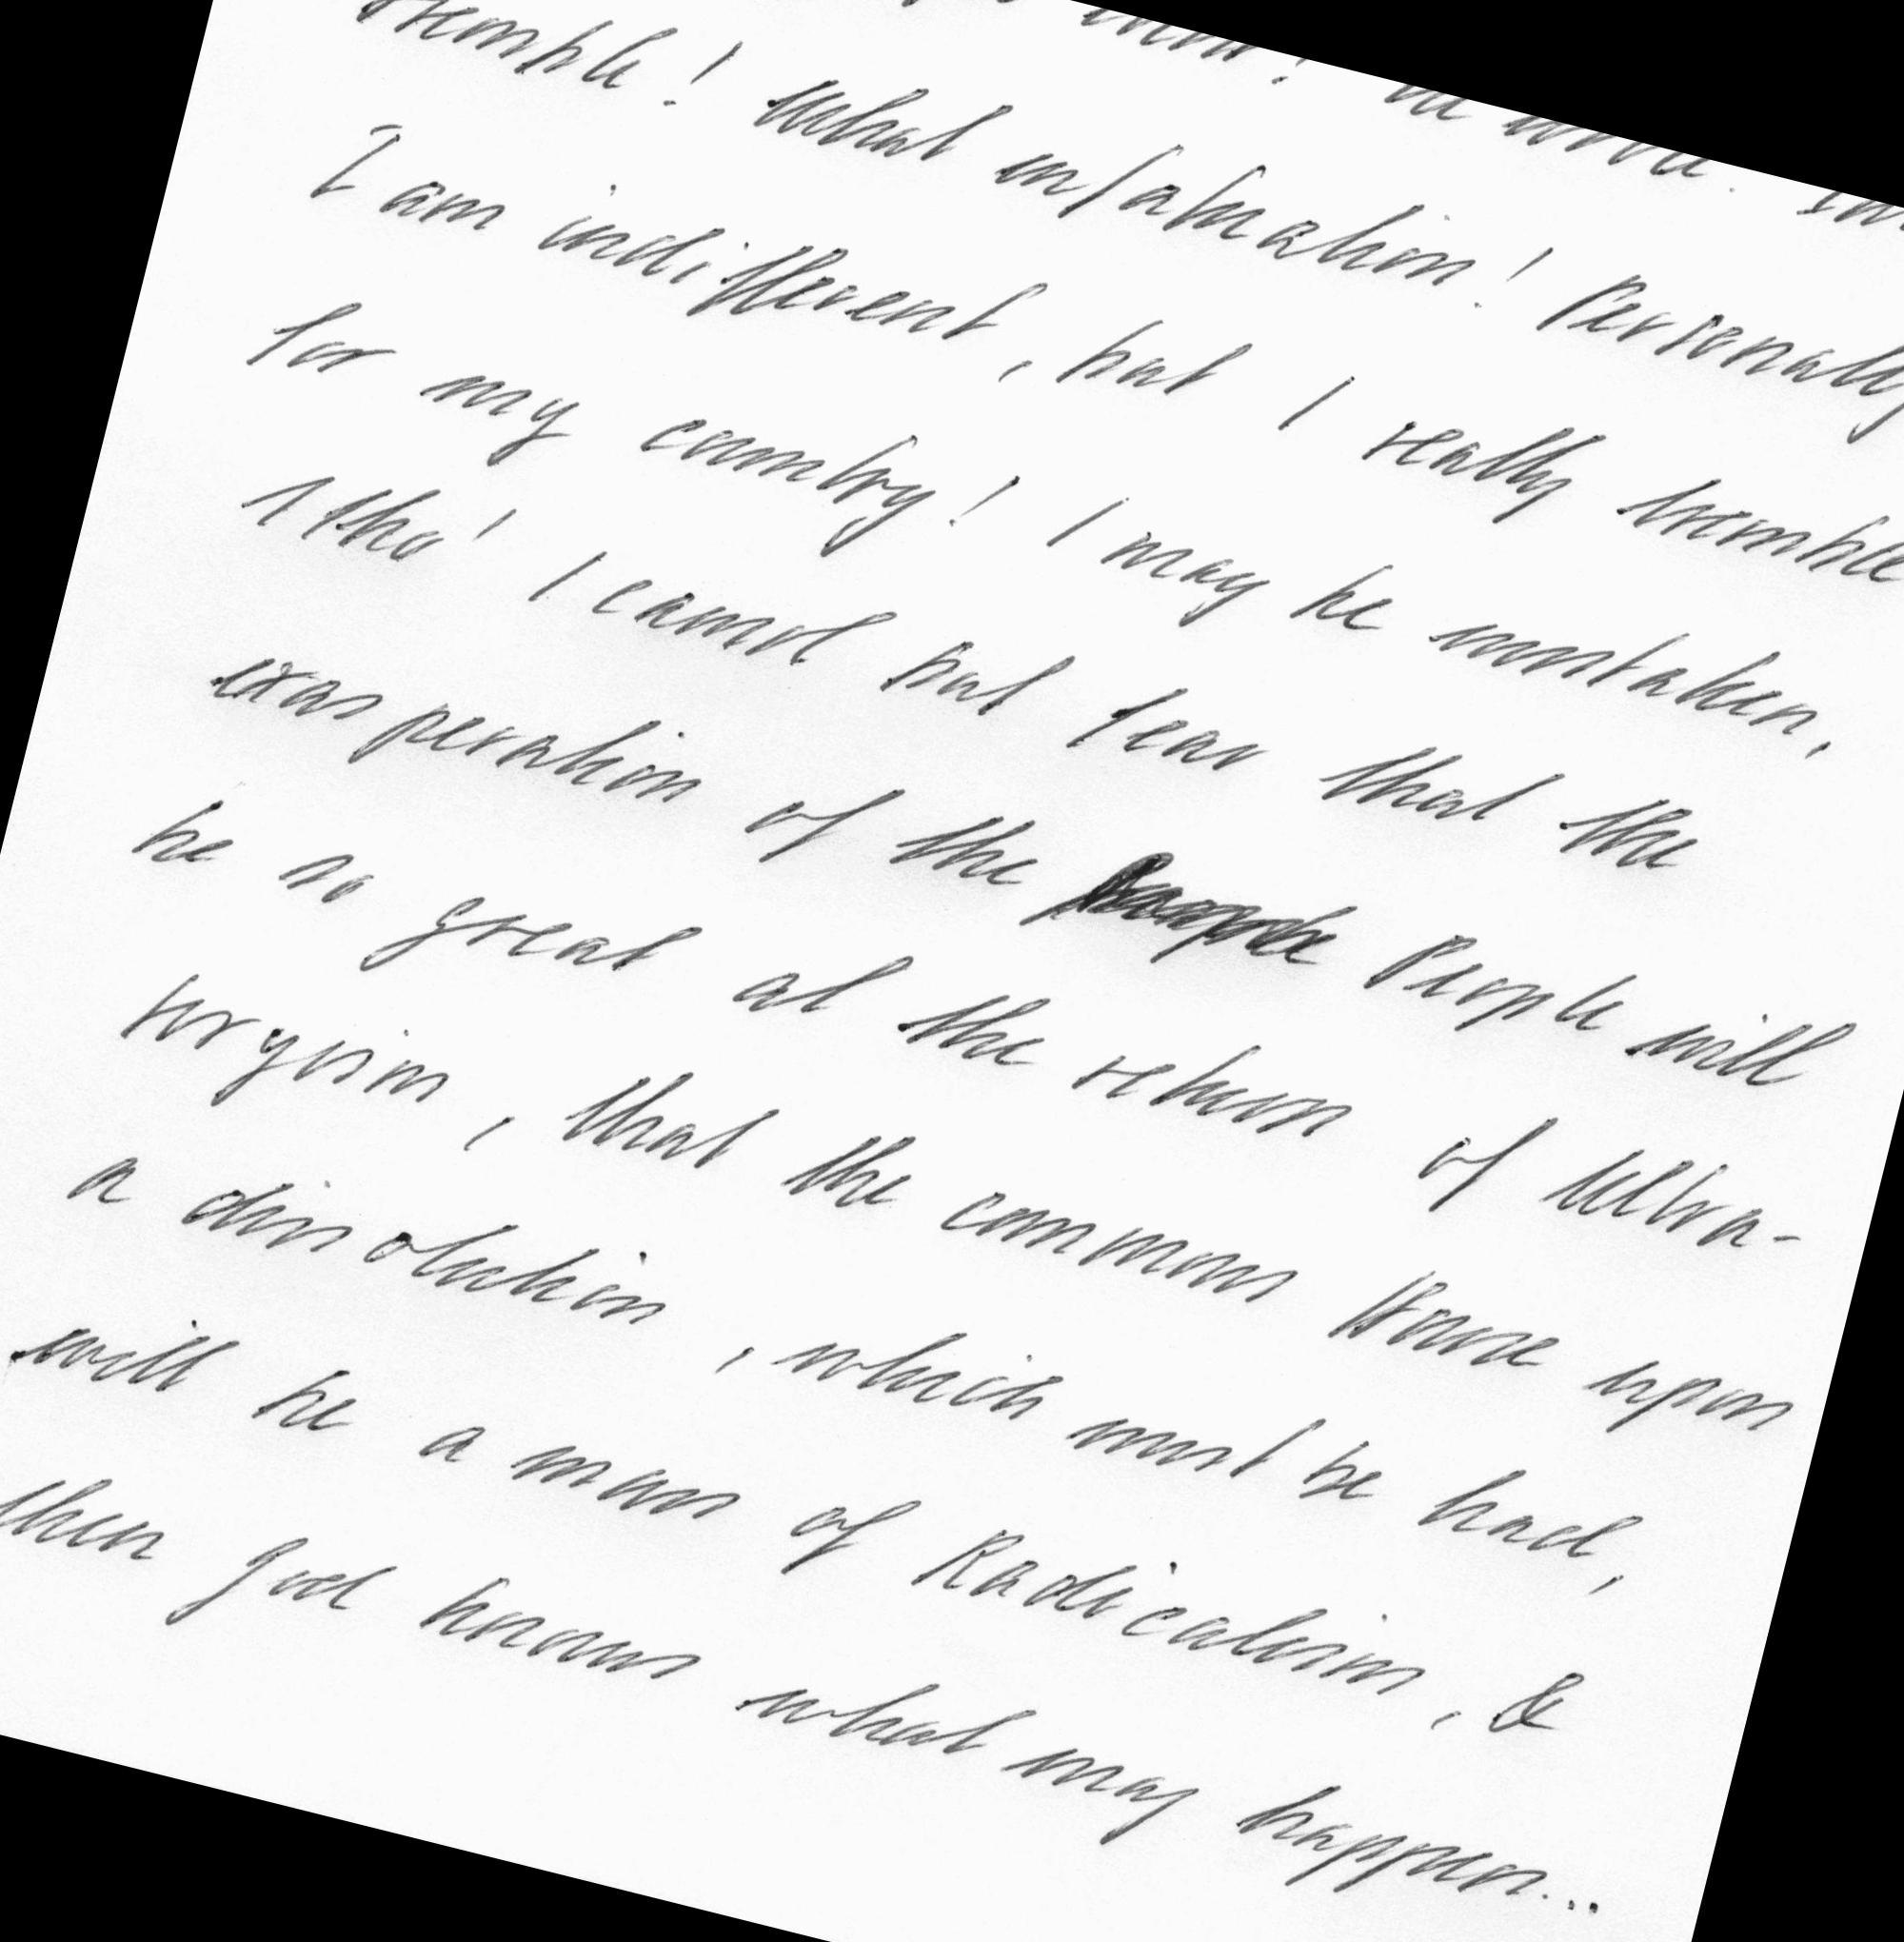 tremble! What infatuation! Personally
I am indifferent, but I really tremble
for my country! I may be mistaken,
tho' I cannot but fear that the
exasperation of the People will
be so great at the return of Ultra-
toryism, that the commons House upon
a dissolution, which must be had,
will be a mass of Radicalism, &
then god knows what may happen...